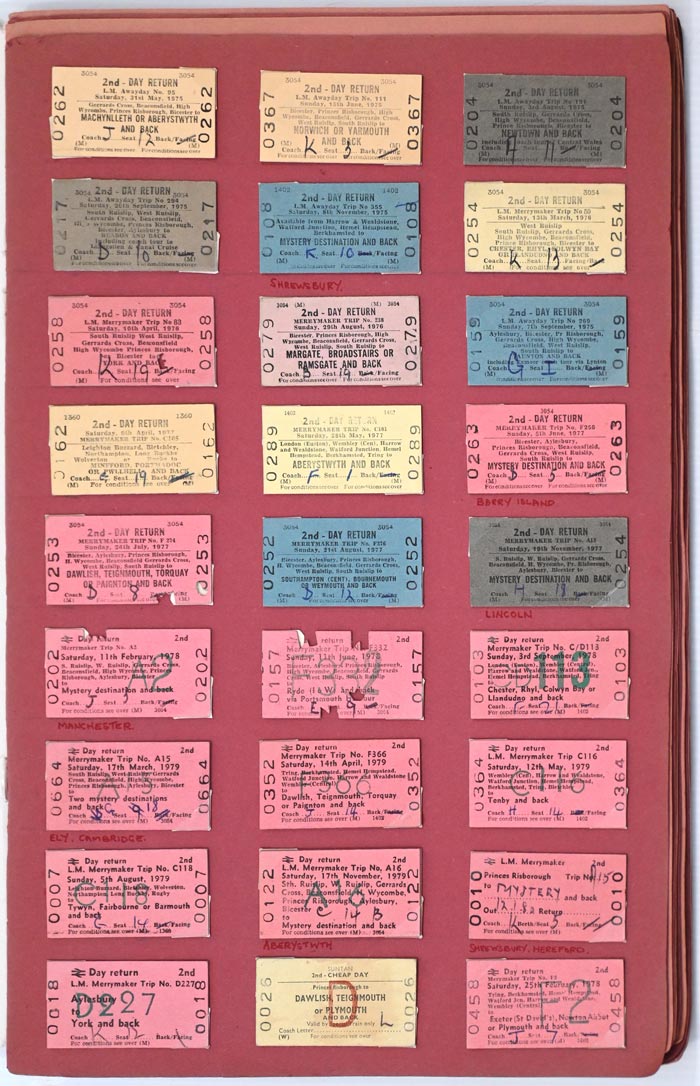 3054 3054
2nd - DAY RETURN
L.M. Awayday No. 95
Saturday, 31st May, 1975
Gerrards Cross, Beaconsfield, High
Wycombe, Princes Risborough, Bicester to
MACHYNLLETH OR ABERYSTWYTH
AND BACK
Coach J Seat 12 Back/Facing
(M) For conditions see over (M)
0262 0262
3054 3054
2nd - DAY RETURN
L.M. Awayday Trip No 111
Sunday, 15th June, 1975
Bicester, Princes Risborough, High
Wycombe, Beaconsfield, Gerrards Cross,
West Ruislip, South Ruislip to
NORWICH OR YARMOUTH
AND BACK
Coach K Seat 5 Back/Facing
(M) For conditions see over (M)
0367 0367
3054 3054
2nd - DAY RETURN
L.M. Awayday Trip No 191
Sunday, 3rd August, 1975
South Ruislip, Gerrards Cross,
High Wycombe, Beaconsfield,
Princes Risborough, Bicester to
NEWTOWN AND BACK
Coach H Seat Back/Facing
0204 0204
3054 3054
2nd - DAY RETURN
L.M. Awayday Trip No 294
September, 1975
South Ruislip, West Ruislip,
Gerrards Cross, Beaconsfield,
Wycombe, Princes Risborough,
AND BACK
Including coach tour to
& Canal Cruise
Coach D Seat 10 Back/Facing
(M) For conditions see over (M)
0217 0217
1402 1402
2nd - DAY RETURN
L.M. Awayday Trip No 355
Saturday, 8th November, 1975
Available from Harrow & Wealdstone,
Watford Junction, Hemel Hempstead,
Berkhamsted to
MYSTERY DESTINATION AND BACK
Coach K Seat 10 Back/Facing
(M) For conditions see over (M)
0108 0108
SHREWSBURY.
3054 3054
2nd - DAY RETURN
L.M. Merrymaker Trip No 50
Saturday, 13th March, 1976
West Ruislip
South Ruislip, Gerrards Cross,
High Wycombe, Beaconsfield,
Princes Risborough, Bicester to
CHESTER, RHYL, COLWYN BAY
OR LLANDUDNO AND BACK
Coach K Seat 13 Back/Facing
(M) For conditions see over (M)
0254 0254
3054 3054
2nd - DAY RETURN
L.M. Merrymaker Trip No 83
Saturday, 10th April, 1976
South Ruislip West Ruislip,
Gerrards Cross, Beaconsfield,
High Wycombe Princes Risborough,
Bicester to
YORK AND BACK
Coach K Seat Back/Facing
(M) For conditions see over (M)
0258 0258
3054 (M) (M) 3054
2nd - DAY RETURN
MERRYMAKER TRIP No. 238
Sunday, 29th August, 1976
Bicester, Princes Risborough, High
Wycombe, Beaconsfield, Gerrards Cross,
West Ruislip, South Ruislip to
MARGATE, BROADSTAIRS OR
RAMSGATE AND BACK
Coach B Seat Back/Facing
For conditions see over
0279 0279
3054 3054
2nd - DAY RETURN
L.M. Awayday Trip No 265
Sunday, 7th September, 1975
Aylesbury, Bicester, Pr Risborough,
High Wycombe, Beaconsfield,
Gerrards Cross, West Ruislip,
South Ruislip to
TAUNTON AND BACK
tour via Lynton
Coach G Seat I
(M) For conditions see over (M)
0159 0159
1360 1360
2nd - DAY RETURN
Saturday, April, 1977
MERRYMAKER TRIP No. C105
Leighton Buzzard, Bletchley,
Northampton, Long Buckby
Wolverton to
MINFFORD, PORTMADOC
OR PWLLHELI AND BACK
Coach E Seat 19 Back/Facing
(M) For conditions see over (M)
0162 0162
1402 1402
2nd - DAY RETURN
MERRYMAKER TRIP No. C181
Saturday, 28th May, 1977
London (Euston), Wembley (Cen), Harrow
and Wealdstone, Watford Junction, Hemel
Hempstead, Berkhamsted, Tring to
ABERYSTWYTH AND BACK
Coach F Seat 1 Back/Facing
(M) For conditions see over (M)
0289 0289
3054
2nd - DAY RETURN
MERRYMAKER TRIP No. F258
Sunday, 5th June, 1977
Bicester, Aylesbury,
Princes Risborough, Beaconsfield,
High Wycombe, Gerrards Cross,
West Ruislip,
South Ruislip to
MYSTERY DESTINATION AND BACK
Coach D Seat 5 Back/Facing
(M) For conditions see over (M)
0263 0263
BARRY ISLAND
3054 3054
2nd - DAY RETURN
MERRYMAKER TRIP No. F 274
Sunday, July, 1977
Bicester, Aylesbury, Princes Risborough,
H. Wycombe, Beaconsfield Gerrards Cross,
West Ruislip, South Ruislip to
DAWLISH, TEIGNMOUTH, TORQUAY
OR PAIGNTON AND BACK
Coach D Seat 8 Back/Facing
(M) For conditions see over (M)
0253 0253
3054 3054
2nd - DAY RETURN
MERRYMAKER TRIP No. F376
Sunday, 21st August, 1977
Bicester, Aylesbury Princes Risborough,
H. Wycombe, Beaconsfield, Gerrards Cross,
West Ruislip, South Ruislip to
SOUTHAMPTON (CENT), BOURNEMOUTH
OR WEYMOUTH AND BACK
Coach D Seat 12 Back/Facing
(M) For conditions see over (M)
0252 0252
2nd - DAY RETURN
MERRYMAKER TRIP No. A13
Saturday, 19th November, 1977
S. Ruislip, W. Ruislip, Gerrards Cross,
Beaconsfield, H. Wycombe, Pr. Risborough,
Aylesbury, Bicester to
MYSTERY DESTINATION AND BACK
Coach H Seat 18 Back/Facing
(M) For conditions see over (M)
0254
LINCOLN
Day return 2nd
Merrymaker Trip No. A2
Saturday, 11th February, 1978
S. Ruislip, W. Ruislip, Gerrards Cross,
Beaconsfield, H. Wycombe, Princes
Risborough, Aylesbury,
to
Mystery destination and back
Coach J Seat Back/Facing
For conditions see over (M) 3054
A2
0202 0202
MANCHESTER.
return 2nd
F332
Sunday, 11th June, 1978
Ryde (IoW) and back
via Portsmouth Harbour
Coach E Seat 9
For conditions see over (M)
0157 0157
Day return 2nd
Merrymaker Trip No. C/D113
Sunday, 3rd September 1978
London (Euston)
Harrow and Wealdstone, Watford Junction,
Hemel Hempstead, Berkhamsted, Tring
to
Chester, Rhyl, Colwyn Bay or
Llandudno and back
Coach F Seat 21 Back/Facing
For conditions see over (M) 1402
113
0103 0103
Day return 2nd
Merrymaker Trip No. A15
Saturday, 17th March, 1979
South Ruislip, West Ruislip, Gerrards
Cross, Beaconsfield, High Wycombe,
Princes Risborough, Aylesbury
to
Two mystery destinations
and back
Coach Seat 18 Back/Facing
For conditions see over (M) 3054
A15
0664 0664
ELY, CAMBRIDGE.
Day return 2nd
Merrymaker Trip No. F366
Saturday, 14th April, 1979
Tring, Berkhamsted, Hemel Hempstead,
Watford Junction, Harrow and Wealdstone
Wembley (Central)
to
Dawlish, Teignmouth, Torquay
or Paignton and back
Coach J Seat 14 Back/Facing
For conditions see over (M) 1402
F366
0352 0352
Day return 2nd
Merrymaker Trip C116
Saturday, 12th May, 1979
Wembley Cen, Harrow and Wealdstone,
Watford Junction, Hemel Hempstead,
Berkhamsted, Tring, Bletchley
to
Tenby and back
Coach H Seat 14 Back/Facing
For conditions see over (M) 1402
C116
0364 0364
Day return 2nd
L.M. Merrymaker Trip No. C118
Sunday, 5th August, 1979
Leighton Buzzard, Bletchley, Wolverton,
Northampton, Long Buckby, Rugby
to
Tywyn, Fairbourne or Barmouth
and back
Coach E Seat 14 Back/Facing
For conditions see over (M) 1360
C118
0007 0007
Day return 2nd
L.M. Merrymaker Trip No. A16
Saturday, 17th November, 1979
Sth. Ruislip, W. Ruislip, Gerrards
Cross, Beaconsfield, H. Wycombe,
Princes Risborough, Aylesbury,
Bicester
to
Mystery destination and back
Coach C Seat 14 B
For conditions see over (M) 3054
A16
0013 0013
ABERYSTWTH
L.M. Merrymaker 2nd
Princes Risborough Trip No. A15
to MYSTERY
Out 12.1.82 Return
and back
Coach K Berth/Seat 5 Back/Facing
For conditions see over (M)
0010 0010
SHREWSBURY, HEREFORD.
Day return 2nd
L.M. Merrymaker Trip No. D227
Aylesbury
to
York and back
Coach K Seat 2 Back/Facing
For conditions see over (M)
D227
0018 0018
SUNTAN
2nd - CHEAP DAY
Princes Risborough to
DAWLISH, TEIGNMOUTH
or PLYMOUTH
AND BACK
Valid by train only
Coach Letter L
(W) For conditions see over
D
0026 0026
Day return 2nd
Merrymaker Trip No. F2
Saturday, 25th February, 1978
Tring, Berkhamsted, Hemel Hempstead,
Watford Jun, Harrow and Wealdstone,
Wembley (Central)
to
Exeter (St David's), Newton Abbot
or Plymouth and back
Coach J Seat 7 Back/Facing
For conditions see over (M) 1402
F2
0458 0458